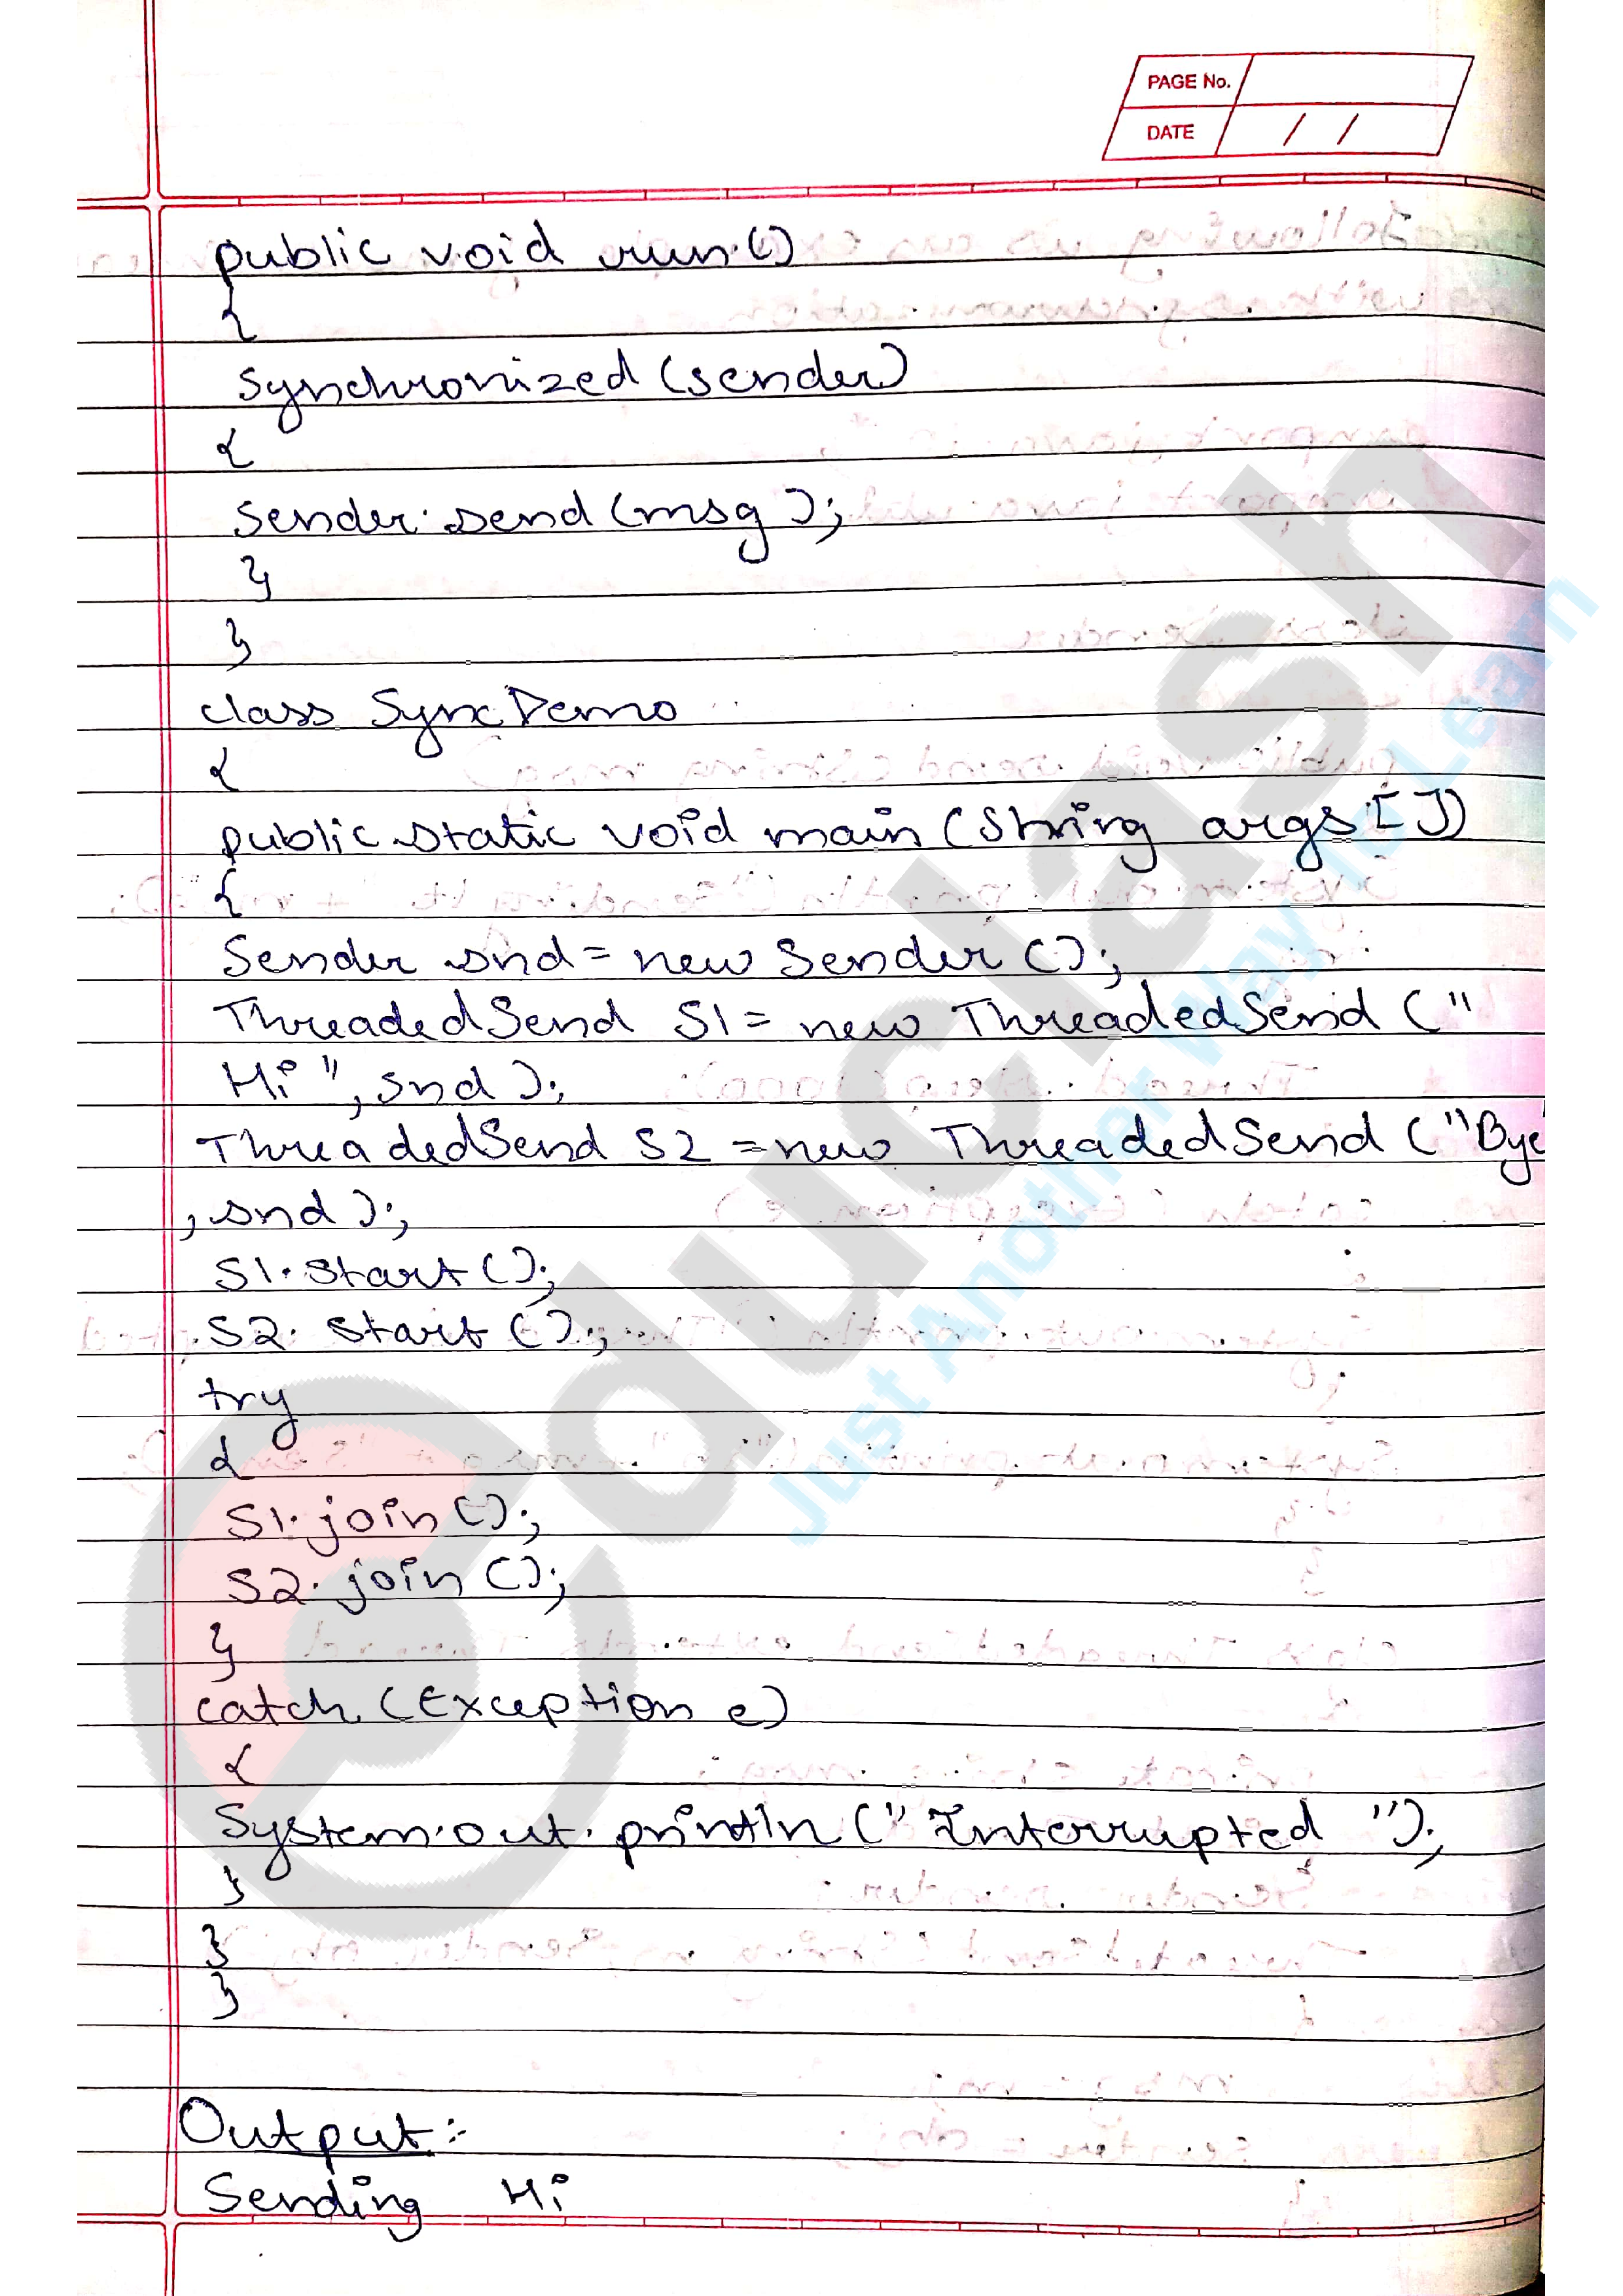 PAGE No.
DATE / /
public void run()
{
synchronized (sender)
{
sender.send(msg);
}
}
class SyncDemo
{
public static void main (String args[])
{
Sender snd = new Sender();
ThreadedSend S1 = new ThreadedSend ("
Hi", snd);
ThreadedSend S2 = new ThreadedSend ("Bye"
, snd);
S1.start();
S2.start();
try
{
S1.join();
S2.join();
}
catch (Exception e)
{
System.out.println("Interrupted ");
}
}
}
Output:-
Sending Hi
educlash
Just Another Way To Learn